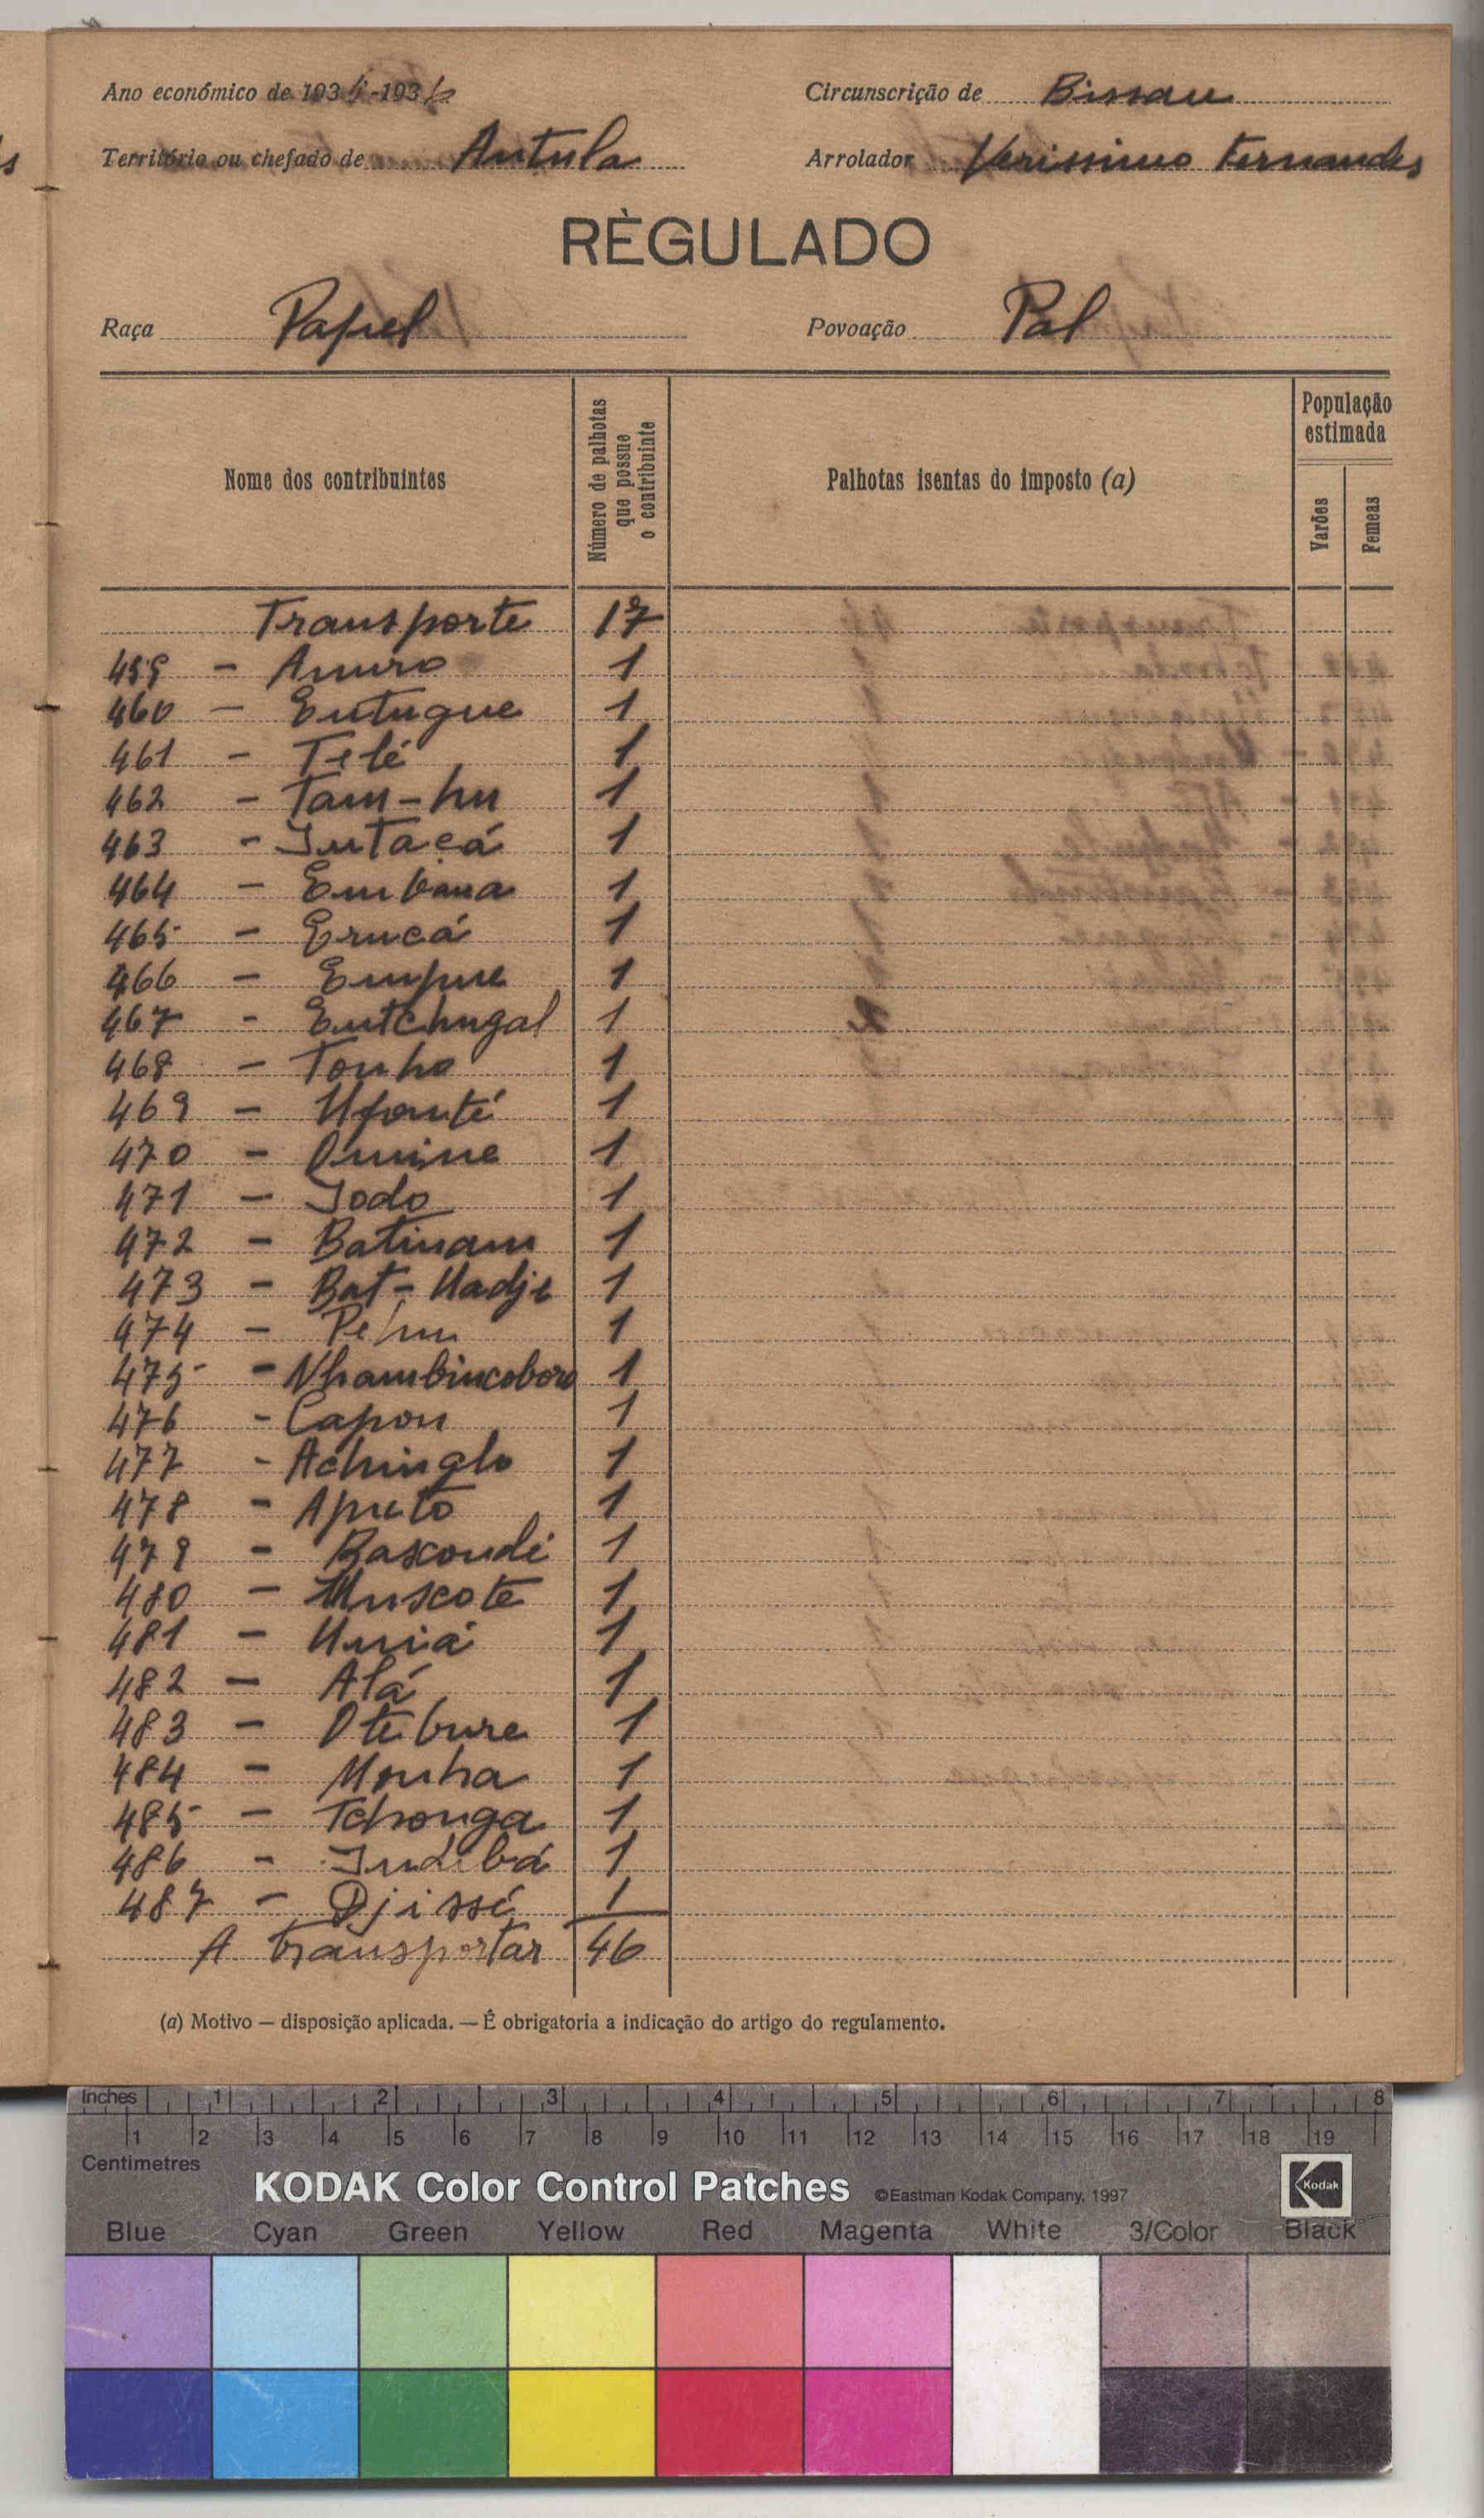 Ano económico de 1935-1936
Circunscrição de Bissau
Território ou chefado de Antula
Arrolador Verissimo Fernandes
RÈGULADO
Raça Papel
Povoação Pal
Nome dos contribuintes
Número de palhotas que possue o contribuinte
Palhotas isentas do imposto (a)
População estimada
Varões
Femeas
Transporte 17
459 - Anuro 1
460 - Entugue 1
461 - Telé 1
462 - Tam-hu 1
463 - Intacá 1
464 - Embana 1
465 - Erucá 1
466 - Empue 1
467 - Entchugal 1
468 - Tonho 1
469 - Ufonté 1
470 - Omine 1
471 - Iodo 1
472 - Batinam 1
473 - Bat-Nadje 1
474 - 1
475 - Nhambincoboro 1
476 - Capon 1
477 - Achinglo 1
478 - Apreto 1
479 - Bascondé 1
480 - Muscote 1
481 - 1
482 - Alá 1
483 - Otebure 1
484 - Monha 1
485 - Tchonga 1
486 - Indebá 1
487 - Djissé 1
A transportar 46
(a) Motivo — disposição aplicada. — É obrigatoria a indicação do artigo do regulamento.
Inches 1 2 3 4 5 6 7 8
1 2 3 4 5 6 7 8 9 10 11 12 13 14 15 16 17 18 19
Centimetres
KODAK Color Control Patches ©Eastman Kodak Company, 1997 Kodak
Blue Cyan Green Yellow Red Magenta White 3/Color Black